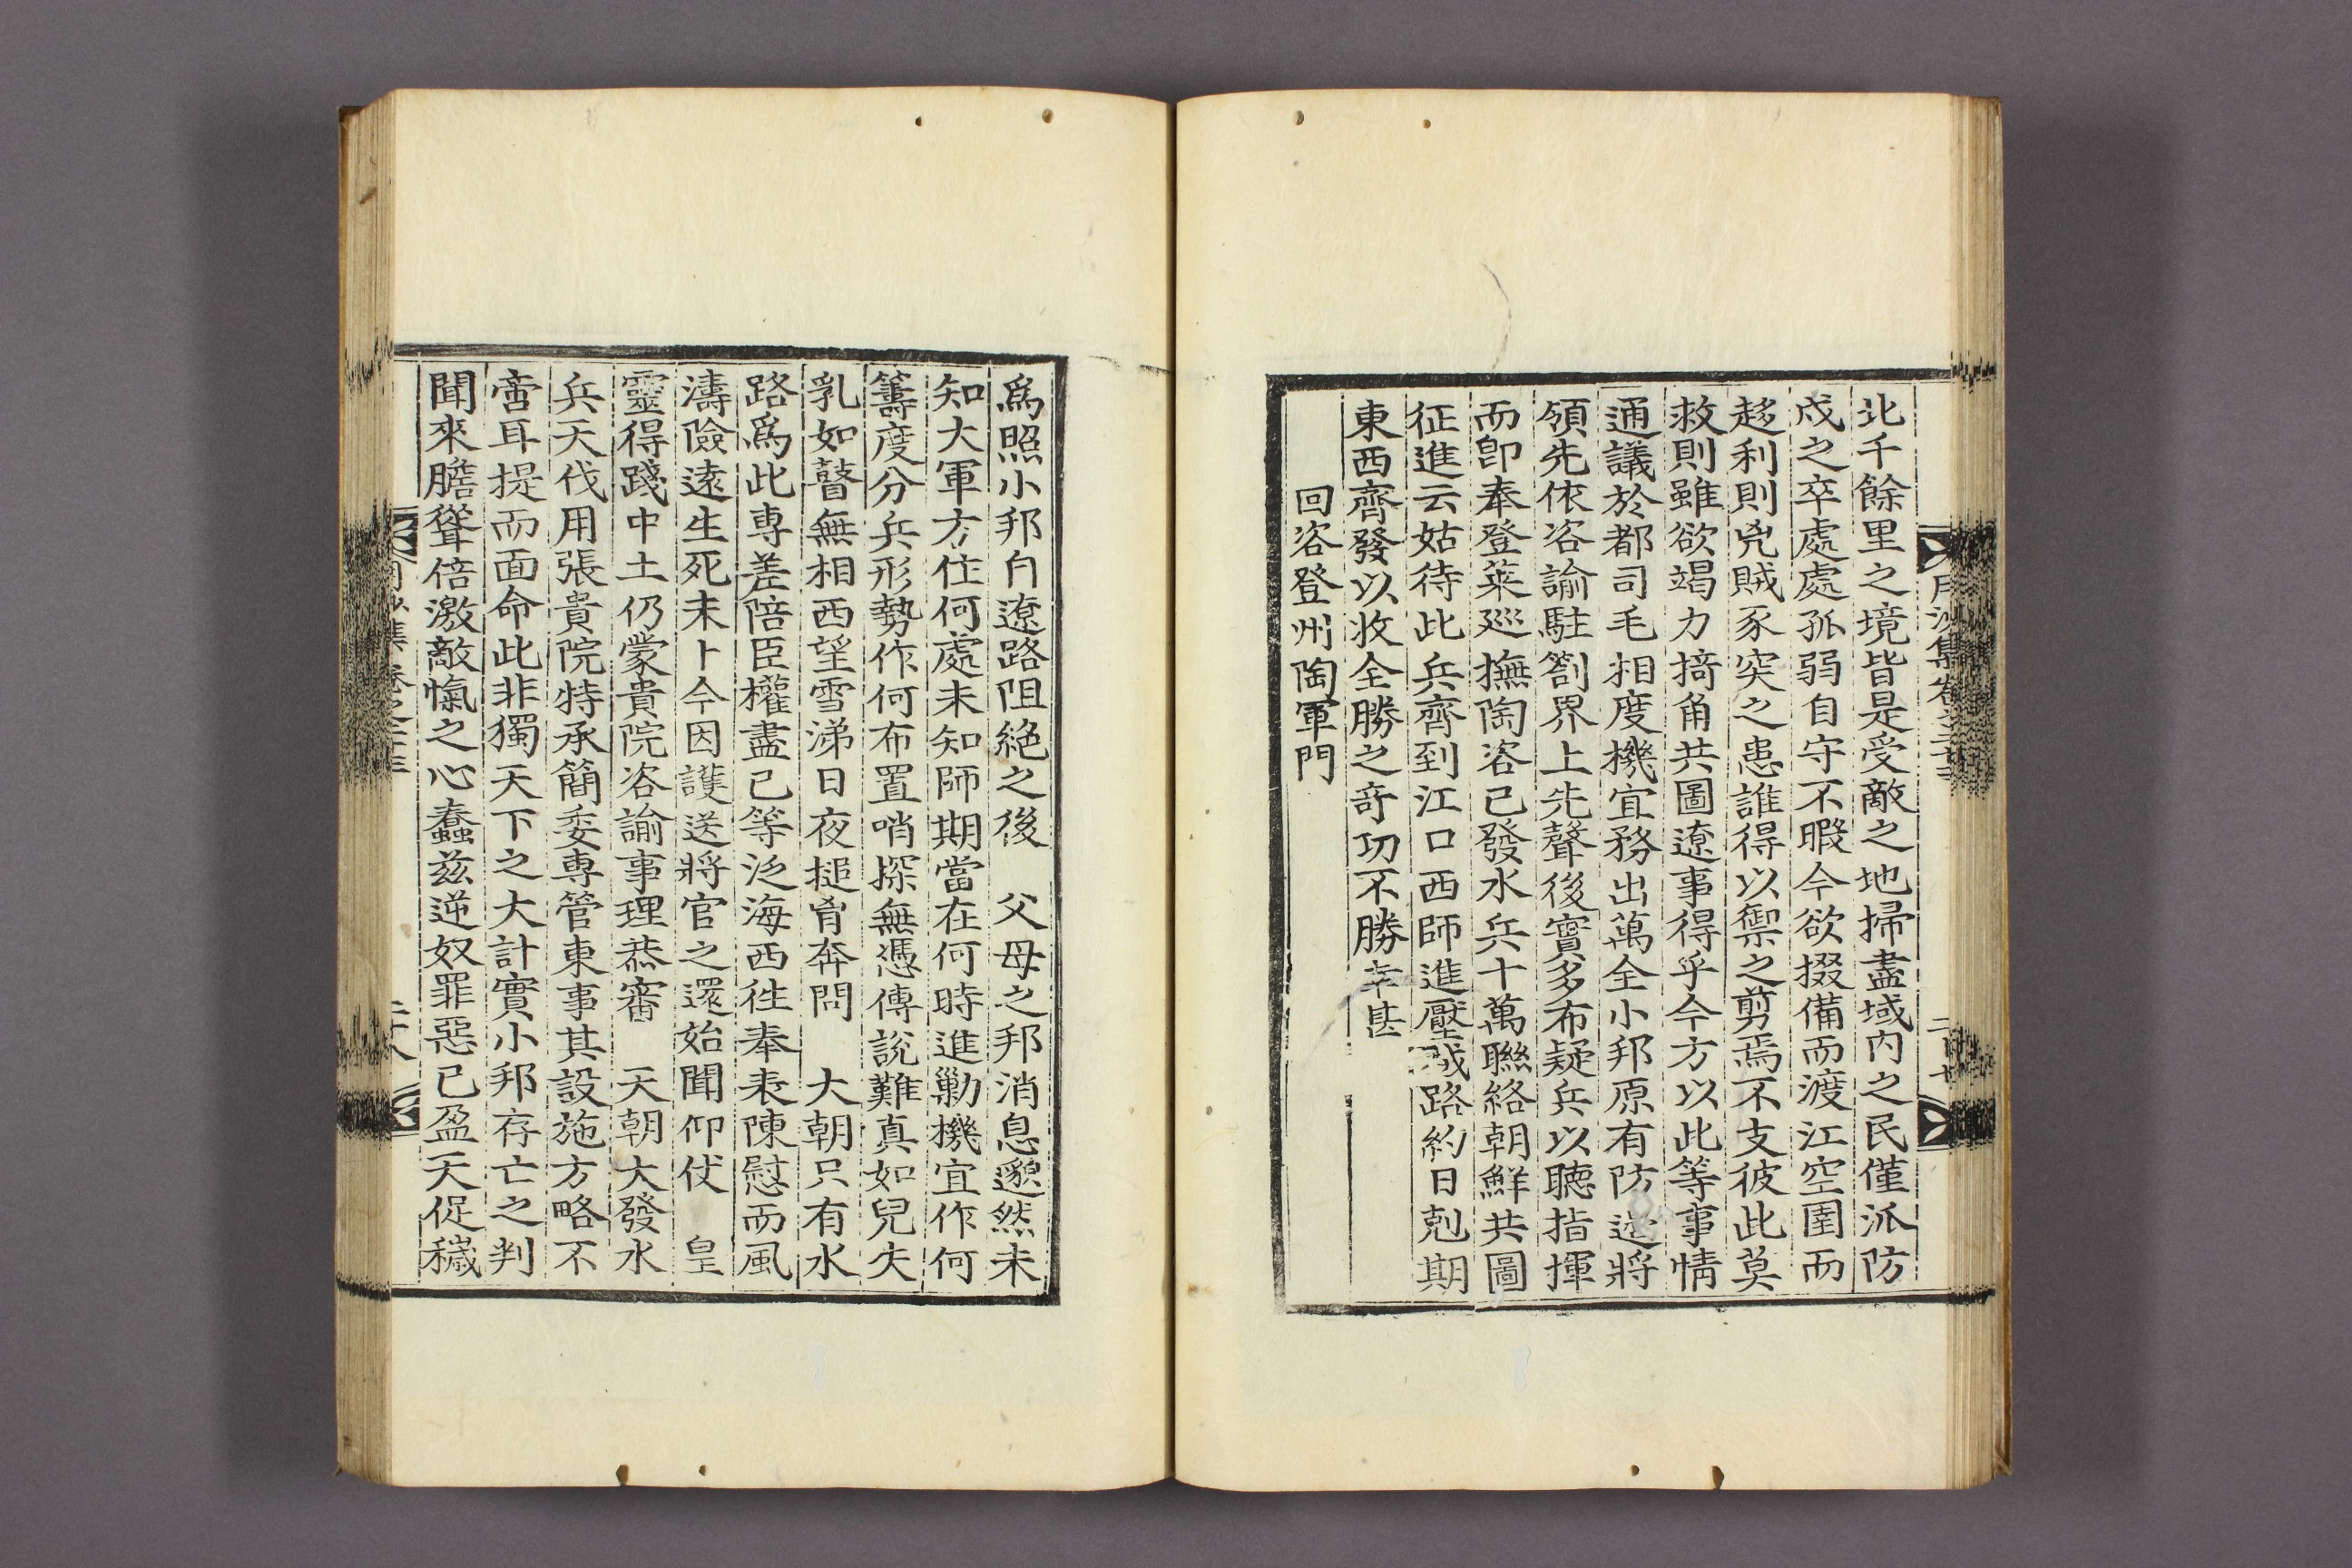 北千餘里之境皆是受敵之地掃盡域內之民僅派防
戍之卒處處孤弱自守不暇今欲掇備而渡江空圉而
趍利則兇賊豕突之患誰得以禦之剪焉不支彼此莫
救則雖欲竭力掎角共圖遼事得乎今方以此等事情
通議於都司毛相度機宜務出萬全小邦原有防邊將
領先依咨諭駐劄界上先聲後實多布疑兵以聽指揮
而卽奉登萊廵撫陶咨已發水兵十萬聯絡朝鮮共圖
征進云姑待此兵齊到江口西師進壓賊路約日剋期
東西齊發以收全勝之奇功不勝幸甚
回咨登州陶軍門
爲照小邦自遼路阻絶之後 父母之邦消息邈然未
知大軍方住何處未知師期當在何時進勦機宜作何
籌度分兵形勢作何布置哨探無憑傳說難真如兒失
乳如瞽無相西望雪涕日夜搥胷奔問 大朝只有水
路爲此専差陪臣權盡己等泛海西徃奉表陳慰而風
濤險遠生死未卜今因護送將官之還始聞仰仗 皇
靈得踐中土仍蒙貴院咨諭事理恭審 天朝大發水
兵天伐用張貴院特承簡委専管東事其設施方略不
啻耳提而面命此非獨天下之大計實小邦存亡之判
聞來膽聳倍激敵愾之心蠢玆逆奴罪惡已盈天促穢